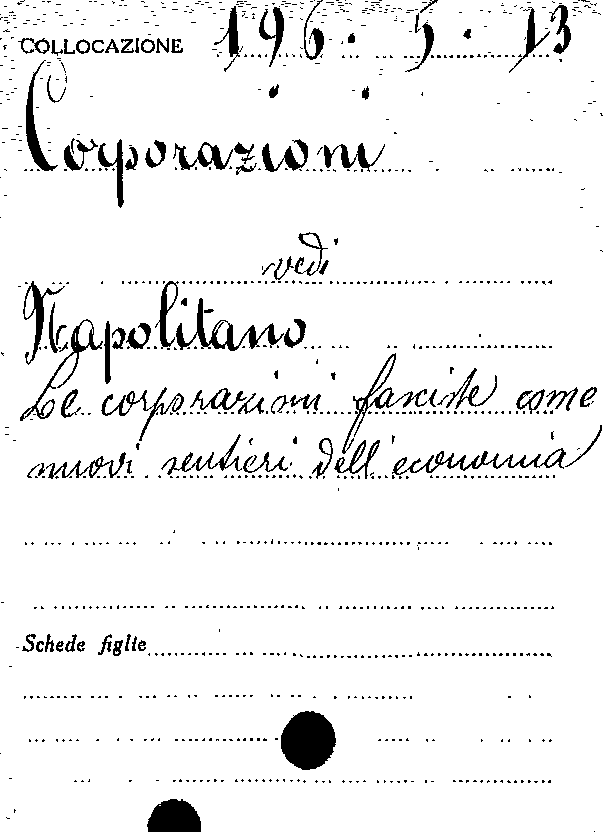 COLLOCAZIONE 196. 5. 13
Corporazioni
vedi
Napolitano
Le corporazioni fasciste come
nuovi sentieri dell'economia
Schede figlie